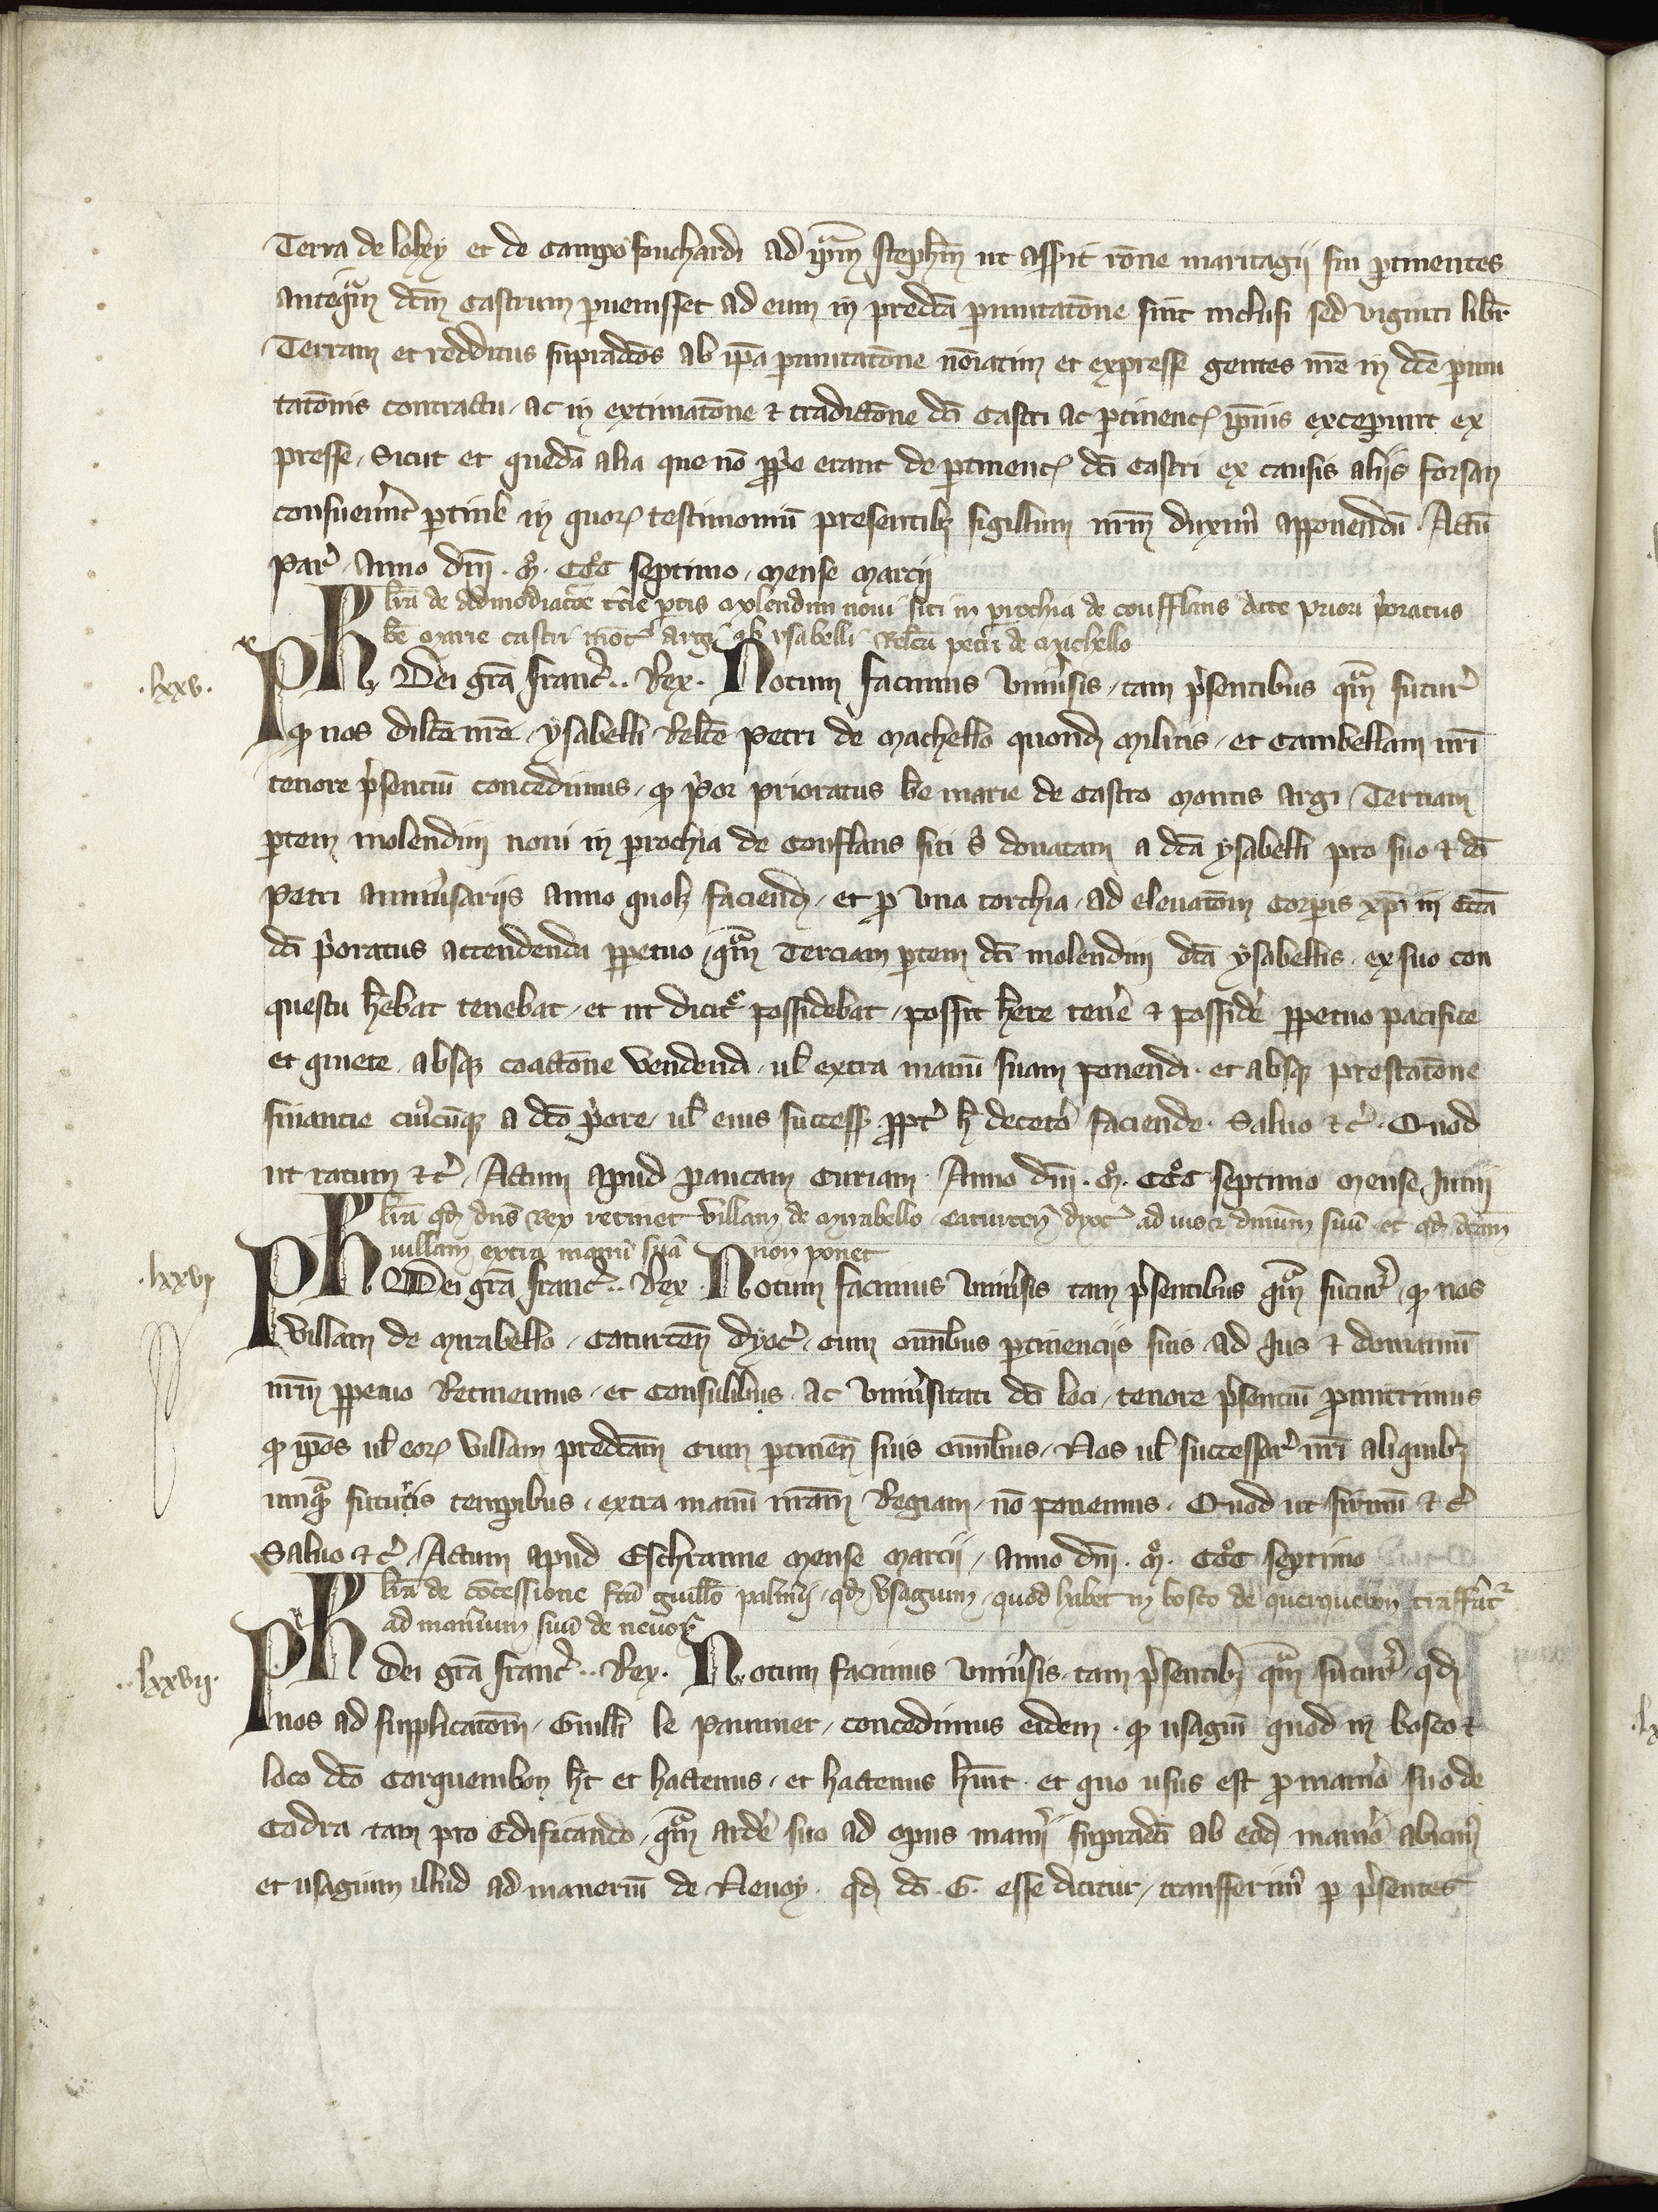 Terra de lobey et de campo fouchardi ad ip̄m steph̄m ut asserit rōne maritagii sui ptinentes
anteqm̄ dc̄m castrum puenisset ad eum in predc̄a pmutatōne sint inclusi sed viginti libr
Terram et redditus supradc̄os ab ip̄a pmutatōne nōiatim et expresse gentes nr̄e in dc̄e pmu
tatōnis contractu ac in extimatōne et tradictōne dc̄i castri ac ptinenc exceperunt ex
presse, Sicut et quedā alia que nō ppe erant de ptinenc dc̄i castri ex causis aliis forsan
consuever̄t ptin̄e in quor testimoniū presentib sigillum nr̄m duxim apponendū. Actū
Par. Anno dn̄i. M. CCC septimo, mense marcii
lr̄a de admodiacōe tc̄ie ptis molendini novi siti in prochia de conflans dicte priori prioratus
be marie castri mōt argi ab ysabelli relc̄a petri de machello
.lxxv. Ph Dei grā franc.. Rex. Notum facimus univsis, tam psentibus qm̄ futur
q nos dilc̄e nr̄e, ysabelli relc̄e Petri de machello quond militis, et cambellani nr̄i
tenore psentiū concedimus, q por prioratus be marie de castro montis argi, Terciam
ptem molendini novi in prochia de conflans siti s donatam a dc̄a ysabelli pro suo et dc̄i
Petri annivsariis anno quol faciend, et p una torchia, ad elevatōm corpis xp̄i in ecc̄a
dc̄i poratus attendenda ppetuo, qm̄ terciam ptem dc̄i molendini dc̄a ysabellis ex suo con
questu hebat tenebat, et ut dicit possidebat, possit here ten̄e et possid̄e ppetuo pacifice
et quiete absq coactōne vendendi, ul extra manū suam ponendi. et absq prestatōne
financie cuicūq a dc̄o pore, ul eius success ppt h decet̄o faciende. Salvo etc. Quod
ut ratum etc. Actum apud paucam curiam. Anno dn̄i. M. CCC septimo mense Junii
lr̄a qd dn̄s Rex retinet villam de mirabello caturcen dyoc ad ius et dn̄ium suū et qd dc̄am
villam extra manū suā non ponet
.lxxvi Ph Dei grā franc.. Rex. Notum facimus univsis tam psentibus qm̄ futur, q nos
villam de mirabello, caturcen dyoc, cum omnibus ptinenciis suis, ad Jus et domaniū
nr̄m ppetuo Retinemus, et consulibus, ac univsitati dc̄i loci, tenore psentiū pmittimus
q ip̄os ul eor villam predc̄am cum ptinen suis omnibus, Nos ul successor nr̄i aliquib
unq̄ futuris temporibus, extra manū nr̄am Regiam, nō ponemus. Quod ut firmū etc
Salvo etc. Actum apud Eschranne mense marcii, anno dn̄i. M. CCC septimo
lr̄a de cōcessione fc̄a guillo palm̄ii, qd usagium, quod habet in bosco de querquebon traffert
ad manium suū de nevoy
..lxxvii. Ph Dei grā franc.. Rex. Notum facimus univsis, tam psentib qm̄ futur, qd
nos ad supplicatōm, Guilli le paumier, concedimus eidem, q usagiū quod in bosco et
loco dc̄o Corquenibon h̄t et hactenus, et hactenus h̄uit et quo usus est p manio suo de
Codra tam pro edificando, qm̄ arde suo ad opus manii supradc̄i ab eod manio
et usagium illud ad maneriū de Nevoy. qd dc̄i. G. esse dicitur, transferim p psentes